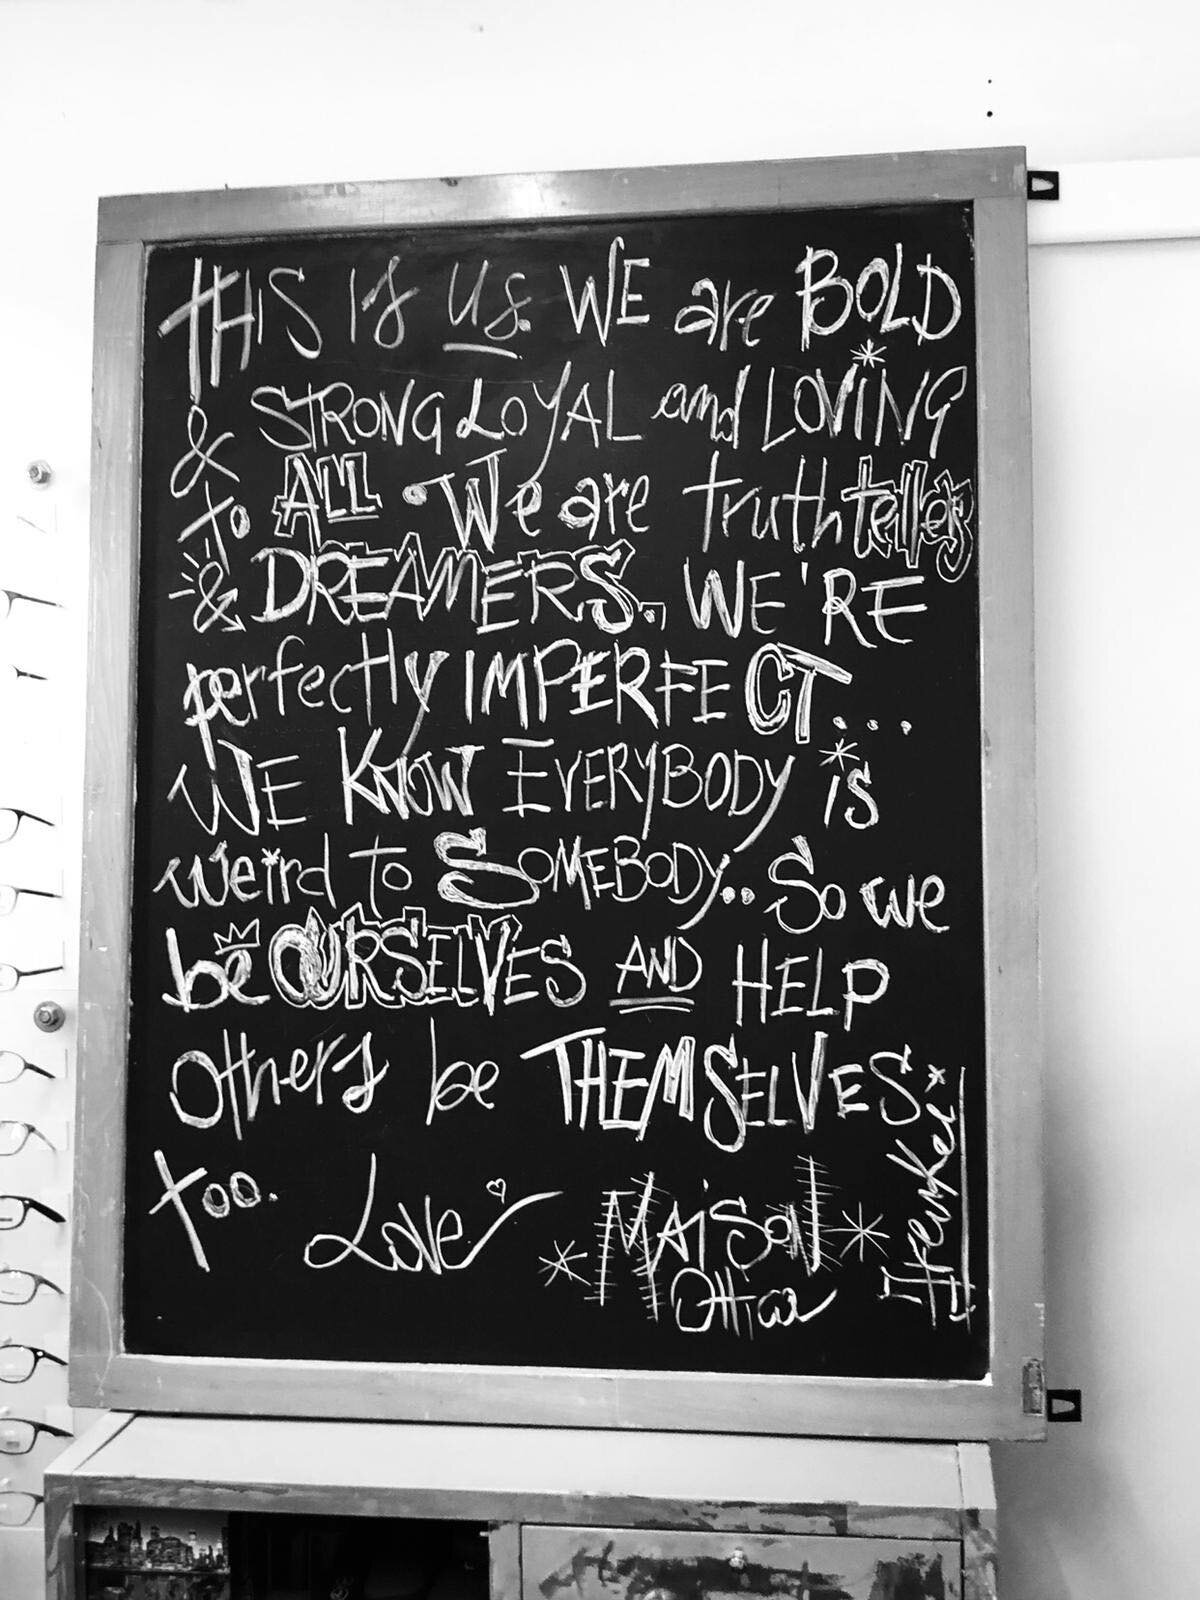 THIS IS US. WE are BOLD
& STRONG LOYAL and LOVING
to ALL • We are truth tellers
& DREAMERS. WE'RE
perfectly IMPERFECT...
WE KNOW EVERYBODY is
weird to SOMEBODY.. So we
be OURSELVES AND HELP
others be THEMSELVES
too. Love
MAISON
Ottica